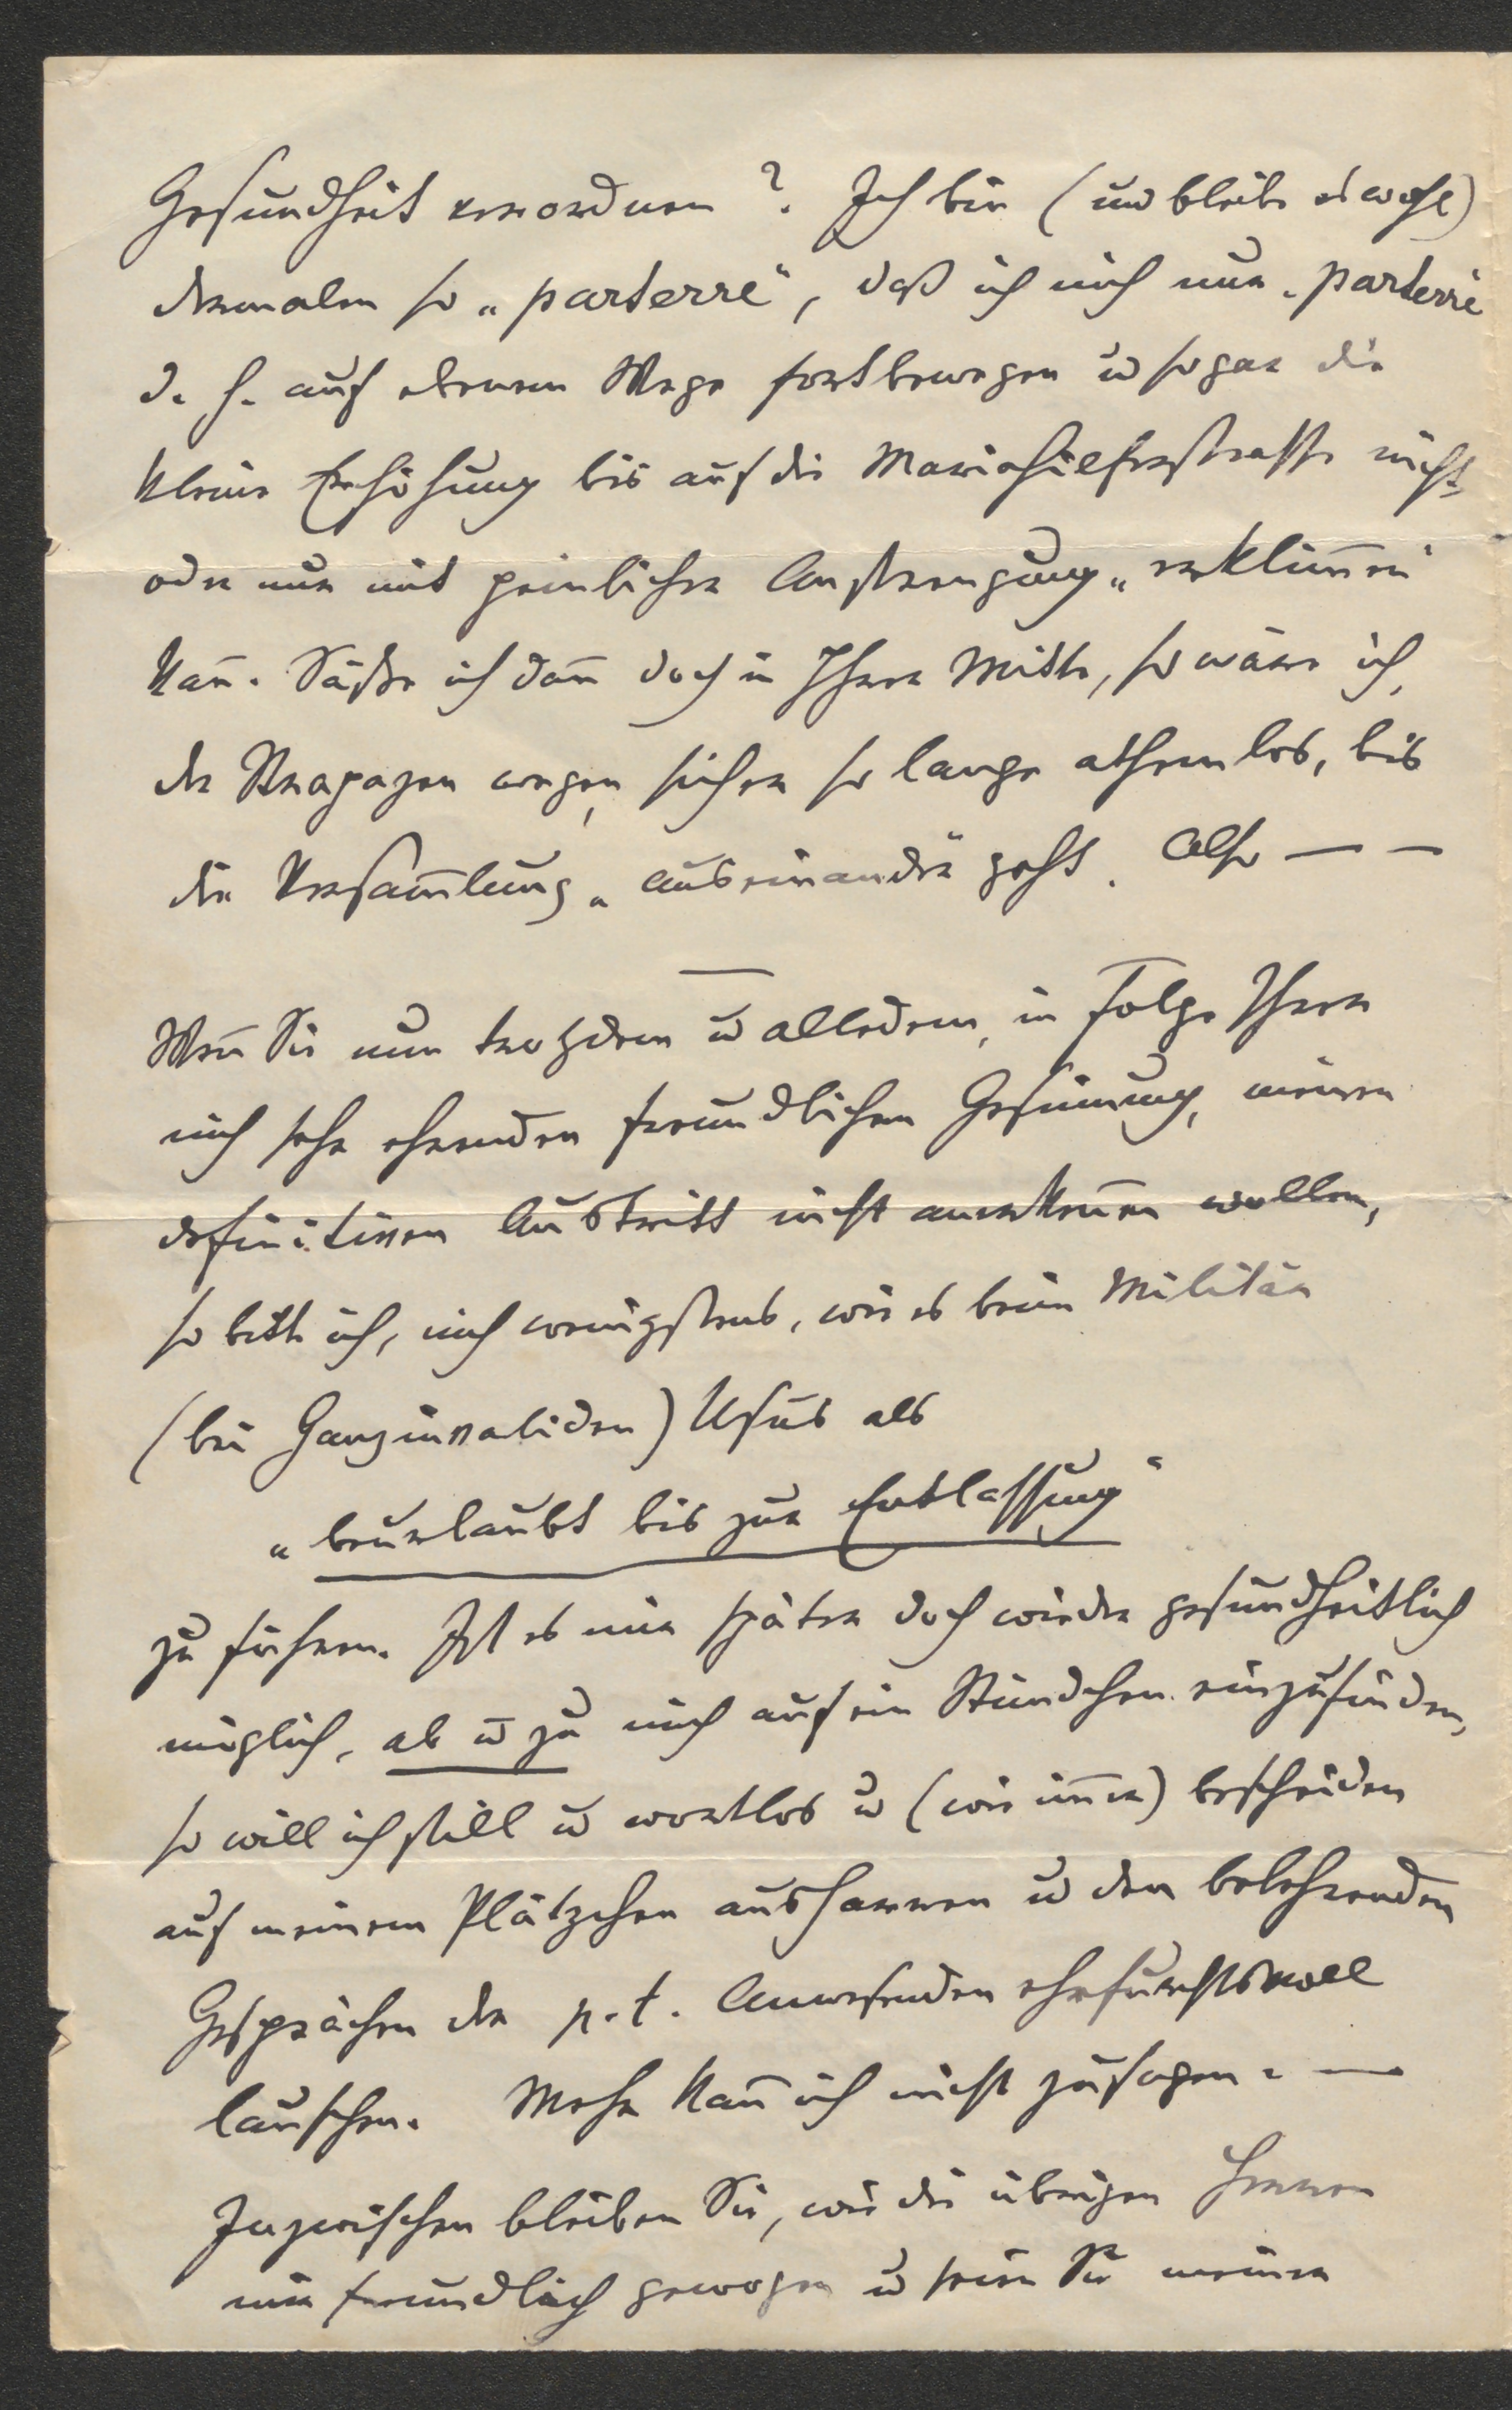 Gesundheit verordnen? Ich bin (und bleib es wohl)
dermalen so „parterre“, daß ich mich nur „parterre“
d. h. auf ebenem Wege fortbewegen u sogar die
kleine Erhöhung bis auf die Mariahilferstrasse nicht
oder nur mit peinlicher Anstrengung „erklim̅en“
kan̅. Säße ich dan̅ doch in Ihrer Mitte, so wäre ich,
der Strapazen wegen, sicher so lange athemlos, bis
die Versam̅lung „auseinander“ geht. Also — —
Wen̅ Sie nun trotzdem u alledem, in Folge Ihrer
mich sehr ehrenden freundlichen Gesinnung, meinen
definitiven Austritt nicht anerken̅en wollen,
so bitte ich, mich wenigstens, wie es beim Militär
(bei Ganzinvaliden) Usus als
„beurlaubt bis zur Entlassung“
zu führen. Ist es mir später doch wieder gesundheitlich
möglich, ab u zu mich auf ein Stündchen einzufinden,
so will ich still u wortlos u (wie im̅er) bescheiden
auf meinem Plätzchen ausharren u den belehrenden
Gesprächen der p. t. Anwesenden ehrfurchtsvoll
lauschen. Mehr kan̅ ich nicht zusagen. —
Inzwischen bleiben Sie, wie die übrigen Herren
mir freundlich gewogen u seien Sie meiner